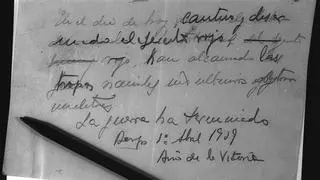 En el día de hoy cautivo y desar
mado el ejército rojo
rojo, han alcanzado las
tropas nacionales sus últimos objetivos
militares
La guerra ha terminado
Burgos 1º Abril 1939
Año de la Victoria